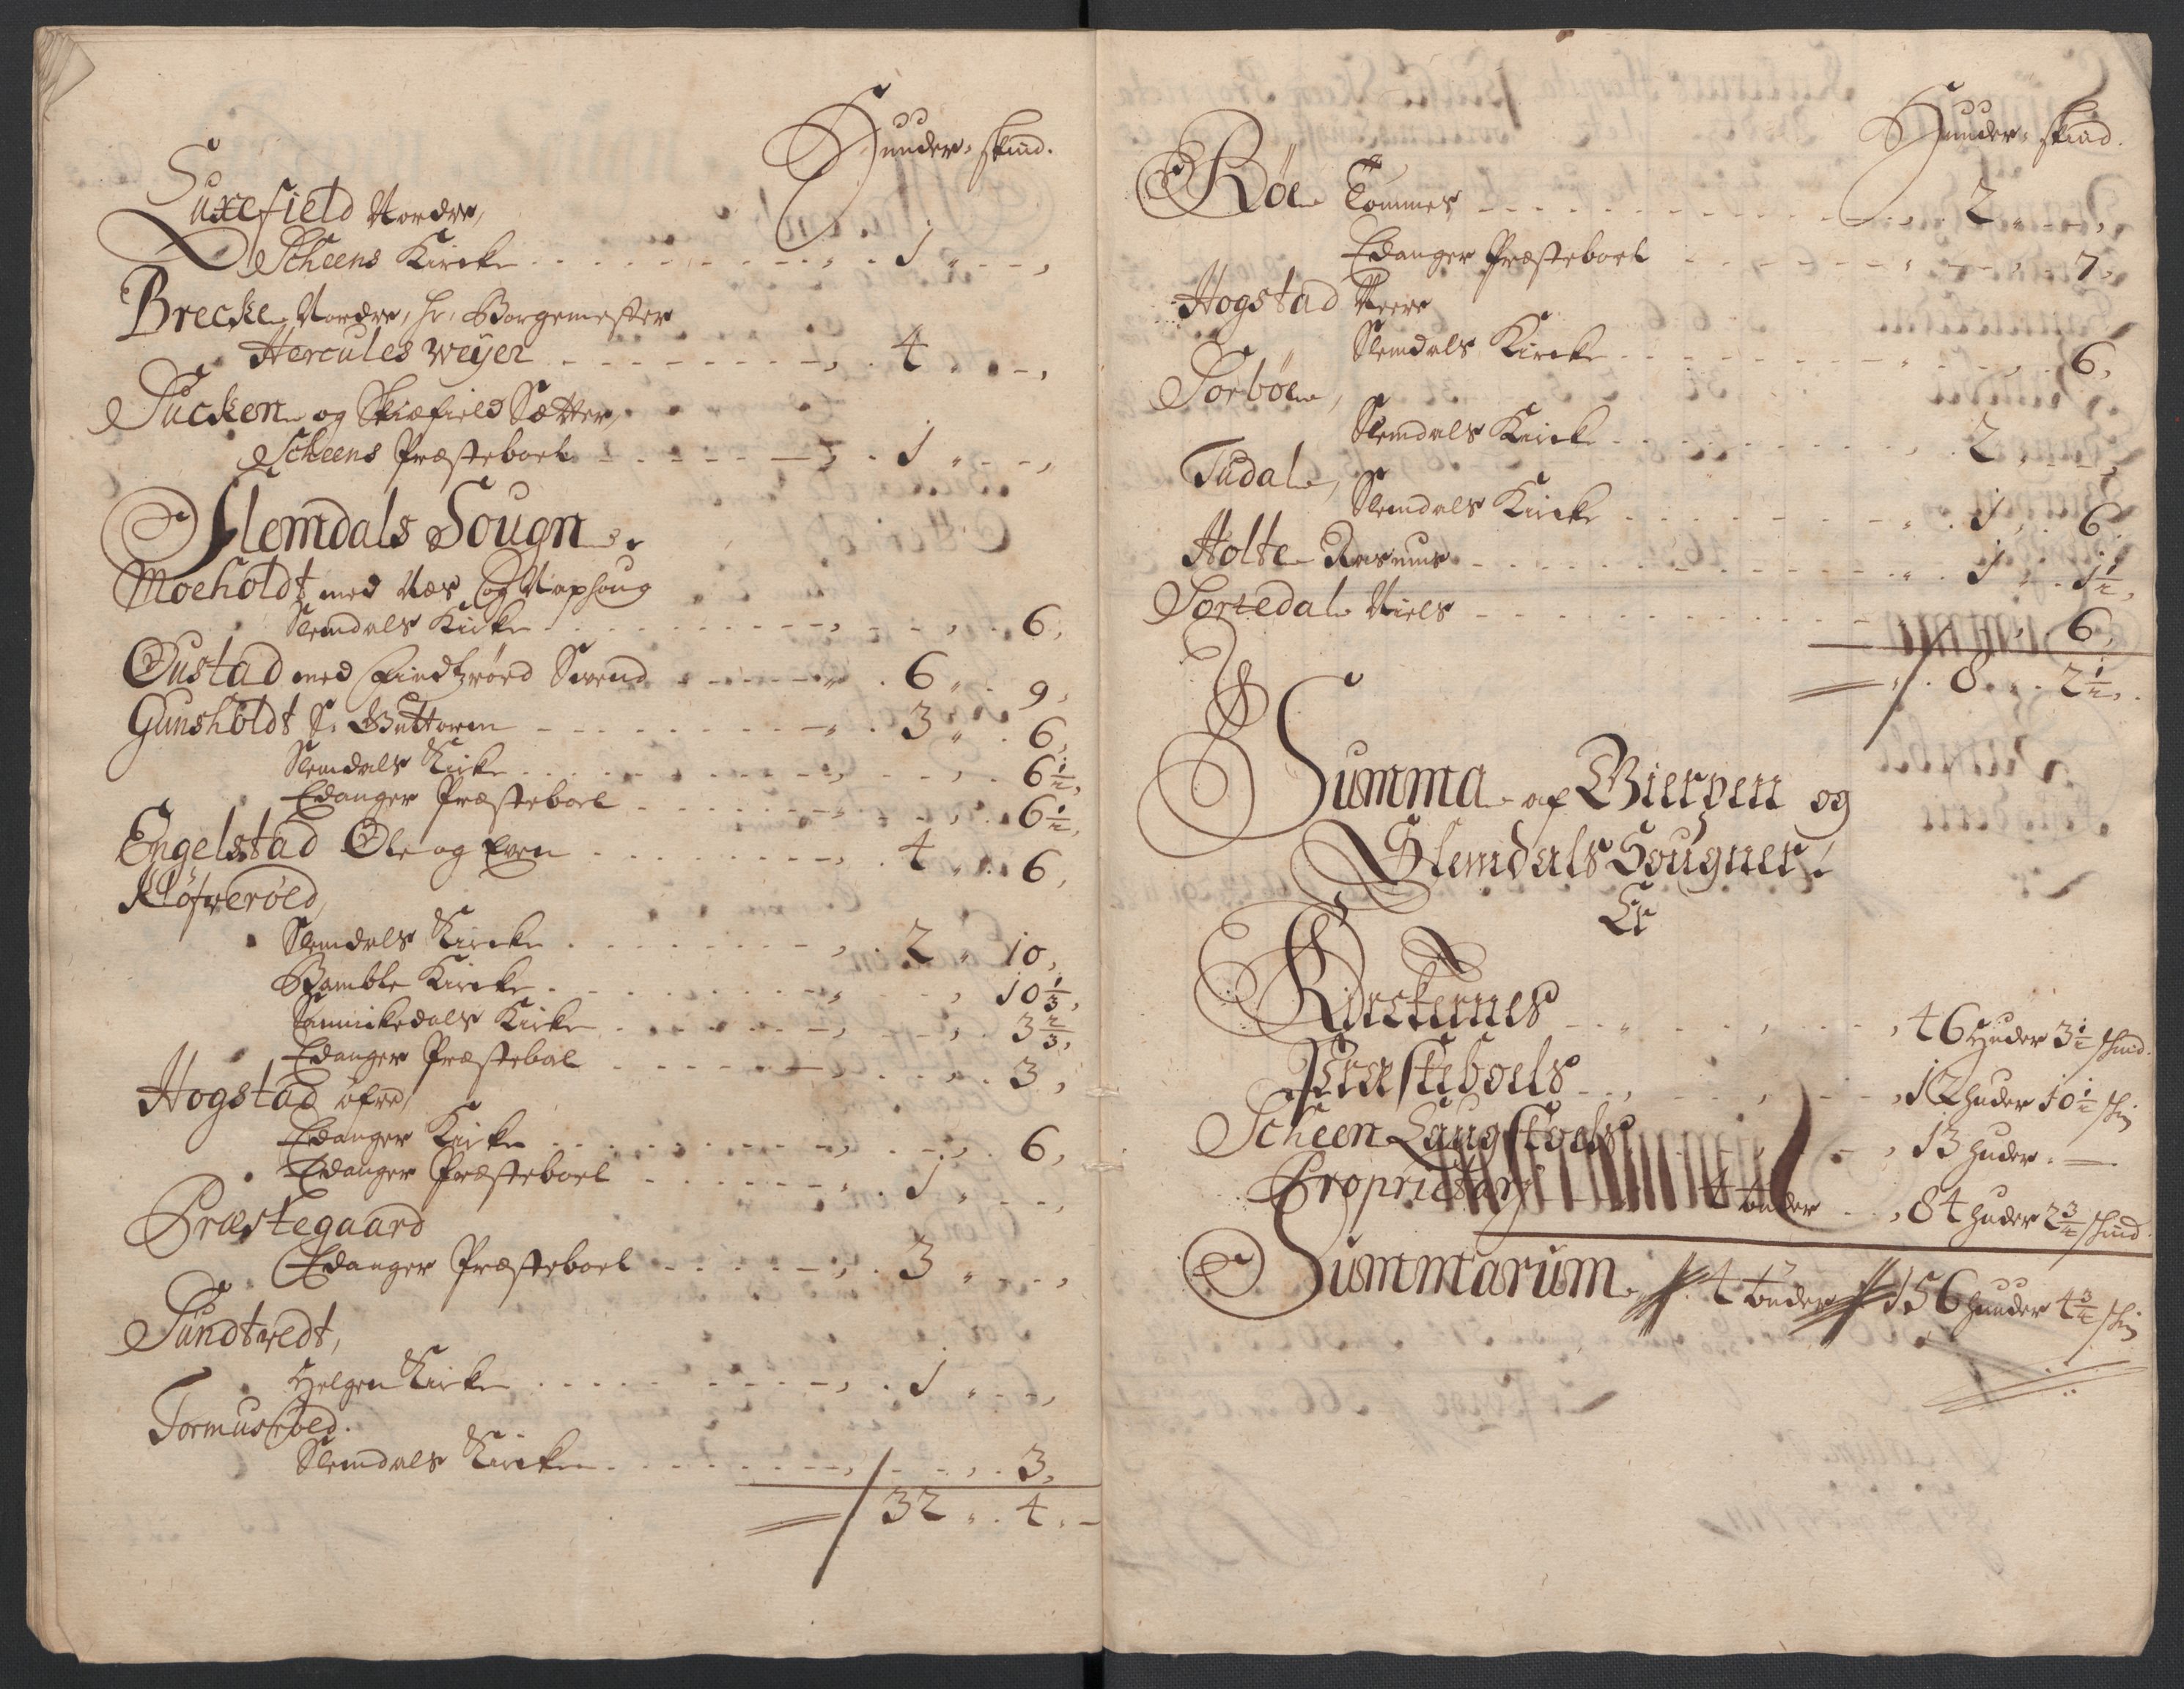 Huuder. skind.
Luxefield Nordre,
Scheens Kircke 1
Brecke Nordre, hr. Borgemester
Hercules Weyer 4
Sucken og Skiefield Sætter,
Scheens Præsteboel 1
Slemdals Sougn.
Moeholdt med Næs og Naphoug
Slemdals Kircke 6,
Oustad med Svend 6 9,
Gunsholdt S. Guttorm 3 6,
Slemdals Kircke 6 1/2,
Edanger Præsteboel 6 1/2,
Engelstad Ole og Even 4 6,
Kløfverøed,
Slemdals Kircke 2 10,
Bamble Kircke 10 1/3,
Sannikedals Kircke 3 2/3,
Edanger Præstebol 3,
Hogstad øfre,
Edanger Kircke 6,
Edanger Præsteboel 1
Præstegaard
Edanger Præsteboel 3
Sundtvedt,
Helgen Kircke 1
Tormusrøed.
Slemdals Kircke 3,
32 4
Huuder. skind.
Røe Tommes 2
Edanger Præsteboel 7,
Hogstad Neere
Slemdals Kircke 6,
Sorbøe,
Slemdals Kircke 2
Tudal,
Slemdals Kircke 1 6
Holte Rasmus 1 1 1/2,
Sortedal Niels 6,
8 2 1/2,
Summa af Gierpen og
Slemdals Sougner.
Er
Kirckernes 46 Huder 3 1/2 skind.
Præsteboels 12 huder 10 1/2 skin
Scheen Laugstoels 13 huder
Proprietary 4 tønder 84 huder 2 3/4 skind
Summarum 4 tønder 156 huuder 4 3/4 skin